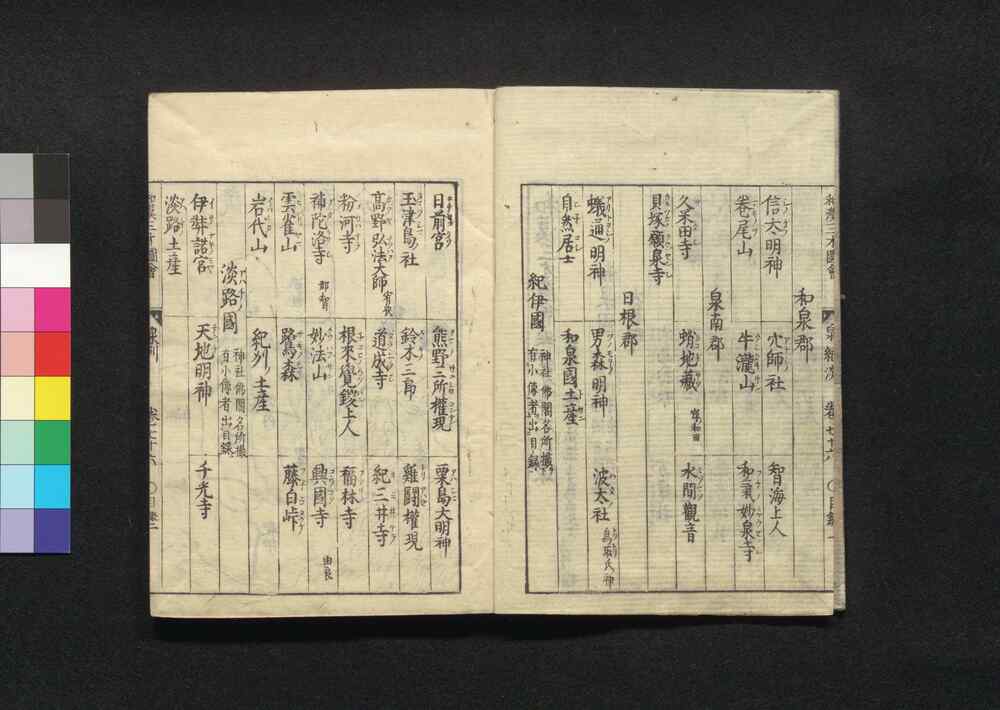 和泉郡
信太明神
穴師社
智海上人
卷尾山
牛瀧山
和氣妙泉寺
泉南郡
久米田寺
蛸地藏
水間觀音
貝塚願泉寺
日根郡
蟻通明神
男森明神
波太社 鳥取氏神
自然居士
和泉國土產
紀伊國 神社佛閣名所撮有小傳者出目錄
日前宮
熊野三所權現
粟島大明神
玉津島社
鈴木三郎
雞鬪權現
高野弘法大師
道成寺
紀三井寺
粉河寺
根來覺鑁上人
福林寺
補陀洛寺 那智
妙法山
興國寺 由良
雲雀山
鷺森
藤白峠
岩代山
紀州土產
淡路國 神社佛閣名所撮有小傳者出目錄
伊弉諾宮
天地明神
千光寺
淡路土產